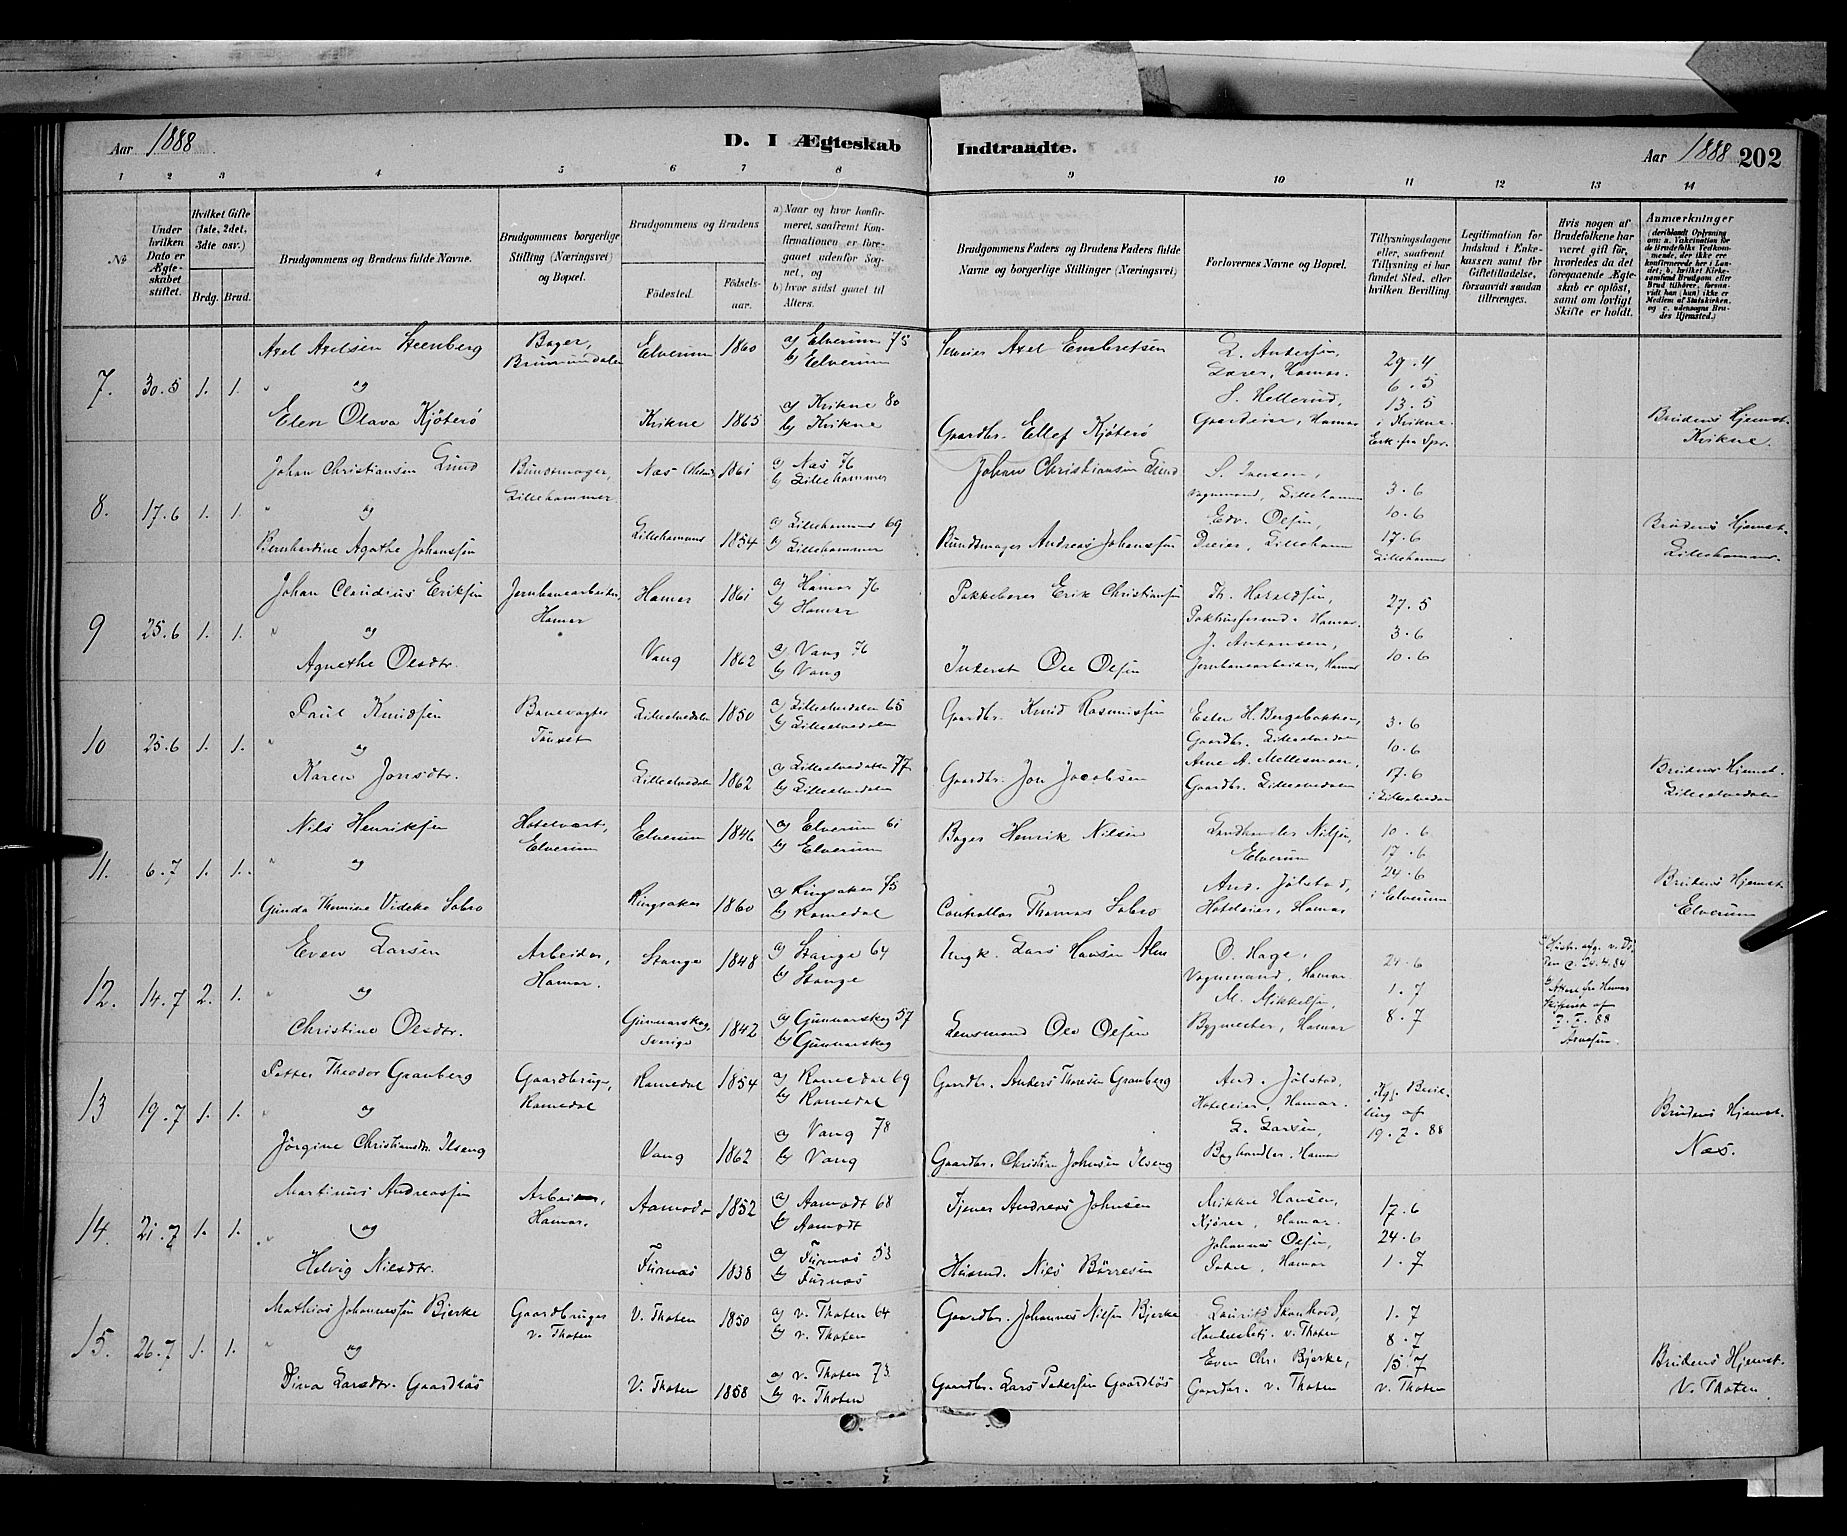 Aar 1888
D. I Ægteskab Indtraadte.
Aar 1888 202
1 2 3 4 5 6 7 8 9 10 11 12 13 14
No
Under hvilken Dato er Ægteskabet stiftet.
Hvilket Gifte (1ste, 2det, 3die osv.)
Brdg. Brud.
Brudgommens og Brudens fulde Navne.
Brudgommens borgerlige Stilling (Næringsvei) og Bopæl.
Brudgommens og Brudens
Fødested.
Fødselsaar.
a) Naar og hvor konfirmeret, saafremt Konfirmationen er foregaaet udenfor Sognet, og
b) hvor sidst gaaet til Alters.
Brudgommens Faders og Brudens Faders fulde Navne og borgerlige Stillinger (Næringsvei)
Forlovernes Navne og Bopæl.
Tillysningsdagene eller, saafremt Tillysning ei har fundet Sted, efter hvilken Bevilling
Legitimation for Indskud i Enkekassen samt for Giftetilladelse, forsaavidt saadan tiltrænges.
Hvis nogen af Brudefolkene har været gift før, hvorledes da det foregaaende Ægteskab er opløst, samt om lovligt Skifte er holdt.
Anmærkninger
7. 30.5 1. 1.
Axel Axelsen Steenberg
Bager, Brumunddalen
Elverum 1860
a) Elverum 75
b) Elverum
Axel Embretsen
L. Andersen,
Lærer, Hamar.
29.4
6.5
13.5
og
Elen Olava Kjøterø
Kvikne 1865
a) Kvikne 80
b) Kvikne
Gaardbr. Ellef Kjøterø
S. Hellerud,
Gaardeier, Hamar
i Kvikne
Brudens Hjemst. Kvikne.
8. 17.6 1. 1.
Johan Christiansen Lund
Bundtmager, Lillehammer
Næs 1861
a) Næs 76
b) Lillehammer
Johan Christiansen Lund
S. Jansen,
Vognmand, Lillehammer
3.6
10.6
17.6
og
Bernhardine Agathe Johanssen
Lillehammer 1854
a) Lillehammer 69
b) Lillehammer
Bundtmager Andreas Johanssen
Edv. Olsen,
Dreier, Lillehammer
Lillehammer
Brudens Hjemst. Lillehammer
9 25.6 1. 1.
Johan Claudius Eriksen
Jernbanearbeider, Hamar
Hamar 1861
a) Hamar 76
b) Hamar
Pakkebærer Erik Christiansen
Th. Haraldsen,
Hamar.
27.5
3.6
10.6
og
Agnethe Olsdtr.
Vang 1862
a) Vang 76
b) Vang
Inderst Ole Olsen
J. Antonsen,
Jernbanearbeider, Hamar
10 25.6 1. 1.
Paul Knudsen
Banevogter Tönset
Lilleelvedalen 1850
a) Lilleelvedalen 65
b) Lilleelvedalen
Gaardbr. Knud Rasmussen
Esten H. Bergebakken,
Gaardbr. Lilleelvedalen
3.6
10.6
17.6
og
Karen Jonsdtr.
Lilleelvedalen 1862
a) Lilleelvedalen 77
b) Lilleelvedalen
Gaardbr. Jon Jacobsen
Arne A. Mellesmoen,
Gaardbr. Lilleelvedalen
i Lilleelvedalen
Brudens Hjemst. Lilleelvedalen
11. 6.7 1. 1.
Nils Henriksen
Hotelvært, Elverum
Elverum 1846
a) Elverum 61
b) Elverum
Bager Henrik Nilsen
Landhandler Nilsen,
Elverum
10.6
17.6
24.6
og
Gunda Thomine Videke Sabro
Ringsaker 1860
a) Ringsaker 75
b) Romedal
Controllør Thomas Sabro
And. Jølstad,
Hoteleier, Hamar
i Elverum
Brudens Hjemst. Elverum
12. 14.7 2. 1.
Even Larsen
Arbeider, Hamar.
Stange 1848
a) Stange 64
b) Stange
Ungk. Lars Hansen Alm
O. Hage,
Vognmand, Hamar
24.6
1.7
8.7
og
Christine Olsdtr.
Gunnarskog Sverige 1842
a) Gunnarskog 57
b) Gunnarskog
Lensmand Ole Olsen
M. Mikkelsen,
Bygmester, Hamar
13 19.7 1. 1.
Petter Theodor Granberg
Gaardbruger, Romedal
Romedal 1854
a) Romedal 69
b) Romedal
Gaardbr. Anders Thoresen Granberg
And. Jølstad,
Hoteleier, Hamar.
Kgl. Bevilling af
19.7.88
og
Jörgine Christiansdtr. Ilseng
Vang 1862
a) Vang 78
b) Vang
Gaardbr. Christian Johnsen Ilseng
L. Larsen,
Boghandler, Hamar
Brudens Hjemst. Næs.
14. 21.7 1. 1.
Martinus Andreassen
Arbeider, Hamar.
Aamodt 1852
a) Aamodt 68
b) Aamodt
Tjener Andreas Johnsen
Mikkel Hansen,
Kjører, Hamar.
17.6
24.6
1.7
og
Helvig Nilsdtr.
Furnæs 1838
a) Furnæs 53
b) Furnæs
Husmd. Nils Børresen
Johannes Olsen,
Hamar
15. 26.7 1. 1.
Mathias Johannessen Bjerke
Gaardbruger v. Thoten
V. Thoten 1850
a) v. Thoten 64
b) v. Thoten
Gaardbr. Johannes Nilsen Bjerke
Laurits Skonhovd,
Handelsbetj. v. Thoten
1.7
8.7
15.7
og
Dina Larsdtr. Gaardløs
V. Thoten 1858
a) v. Thoten 73
b) v. Thoten
Gaardbr. Lars Pedersen Gaardløs
Even Chr. Bjerke,
Gaardbr. v. Thoten
v. Thoten
Brudens Hjemst. V. Thoten